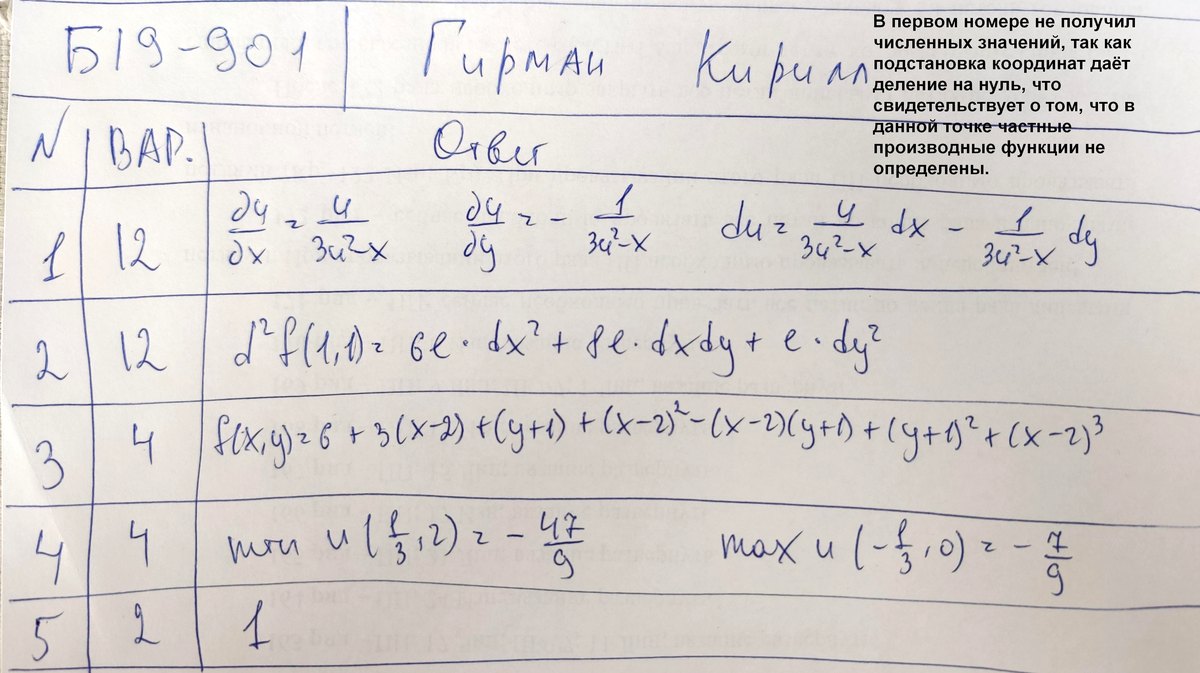 Б19-901 Гирман Кирилл
В первом номере не получил
численных значений, так как
подстановка координат даёт
деление на нуль, что
свидетельствует о том, что в
данной точке частные
производные функции не
определены.
N ВАР. Ответ
1 12 ∂u/∂x = u/(3u²-x) ∂u/∂y = - 1/(3u²-x) du = u/(3u²-x) dx - 1/(3u²-x) dy
2 12 d²f(1,1) = 6e · dx² + 8e · dxdy + e · dy²
3 4 f(x,y) = 6 + 3(x-2) + (y+1) + (x-2)² - (x-2)(y+1) + (y+1)² + (x-2)³
4 4 min u (1/3, 2) = - 47/9 max u (-1/3, 0) = - 7/9
5 2 1